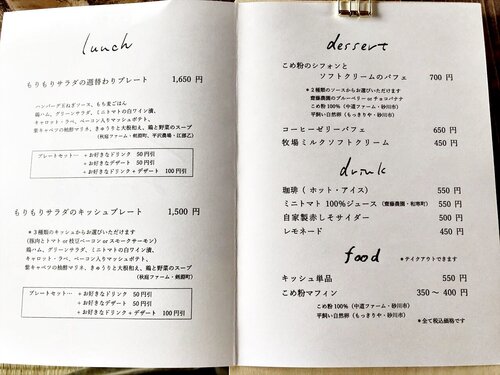 lunch
もりもりサラダの週替わりプレート 1,650 円
ハンバーグ玉ねぎソース、もち麦ごはん
鶏ハム、グリーンサラダ、ミニトマトの白ワイン漬、
キャロット・ラペ、ベーコン入りマッシュポテト、
紫キャベツの柚酢マリネ、きゅうりと大根和え、鶏と野菜のスープ
(秋庭ファーム・剣淵町、平沢農場・江部乙)
プレートセット… +お好きなドリンク 50 円引
+お好きなデザート 50 円引
+お好きなドリンク+デザート 100 円引
もりもりサラダのキッシュプレート 1,500 円
*3種類のキッシュからお選びいただけます
(豚肉とトマト or 枝豆ベーコン or スモークサーモン)
鶏ハム、グリーンサラダ、ミニトマトの白ワイン漬、
キャロット・ラペ、ベーコン入りマッシュポテト、
紫キャベツの柚酢マリネ、きゅうりと大根和え、鶏と野菜のスープ
(秋庭ファーム・剣淵町)
プレートセット… +お好きなドリンク 50 円引
+お好きなデザート 50 円引
+お好きなドリンク+デザート 100 円引
dessert
こめ粉のシフォンと
ソフトクリームのパフェ 700 円
*2種類のソースからお選びいただけます
齋藤農園のブルーベリー or チョコバナナ
こめ粉 100% (中道ファーム・砂川市)
平飼い自然卵 (もっきりや・砂川市)
コーヒーゼリーパフェ 650 円
牧場ミルクソフトクリーム 450 円
drink
珈琲 ( ホット・アイス) 550 円
ミニトマト 100%ジュース (齋藤農園・和寒町) 550 円
自家製赤しそサイダー 500 円
レモネード 450 円
food *テイクアウトできます
キッシュ単品 550 円
こめ粉マフィン 350～ 400 円
こめ粉 100% (中道ファーム・砂川市)
平飼い自然卵 (もっきりや・砂川市)
*全て税込価格です